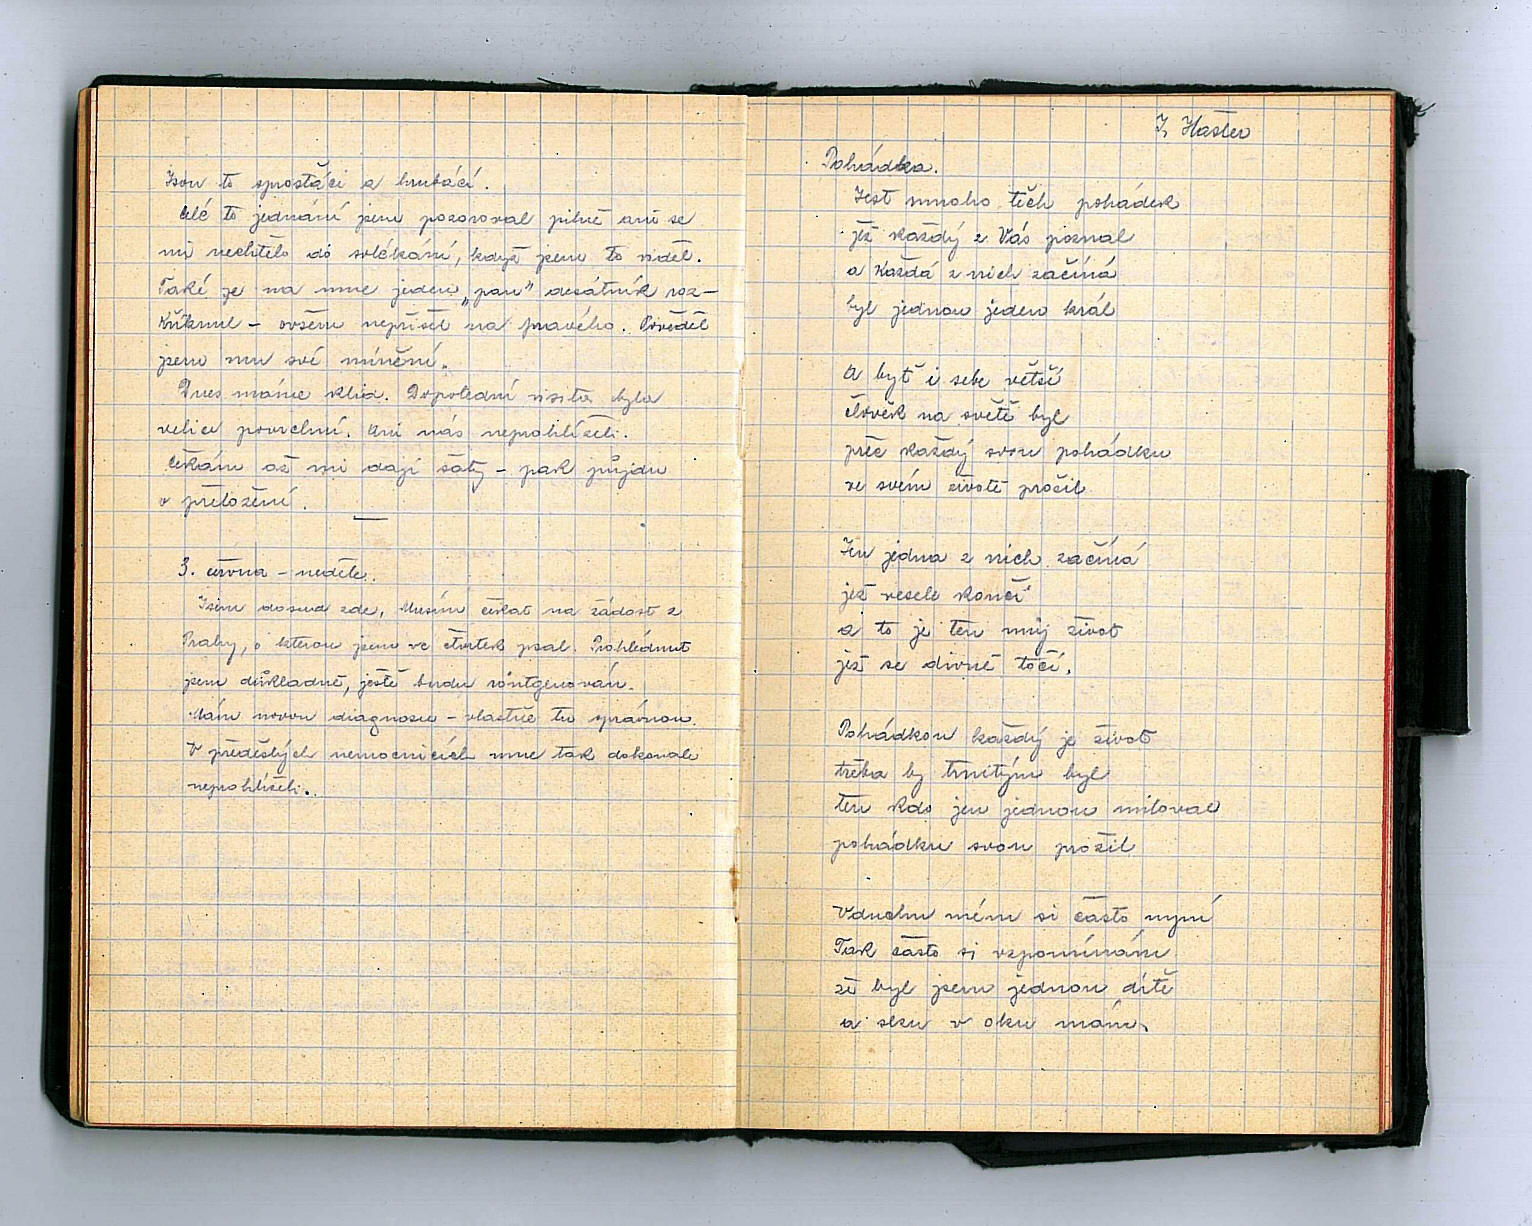 Jsou to sprosťáci a hrubáci.
Celé to jednání jsem pozoroval pilně ani se
mi nechtělo do svlékání, když jsem to viděl.
Také je na mne jeden „pan" desátník roz-
křiknul – ovšem nepřišel na pravého. Pověděl
jsem mu své mínění.
Dnes máme klid. Dopolední visita byla
velice povrchní. Ani nás neprohlíželi.
Čekám až mi dají šaty – pak půjdu
v přeložení.
3. června – neděle.
Jsem dosud zde, Musím čekat na žádost z
Prahy, o kterou jsem ve čtvrtek psal. Prohlédnut
jsem důkladně, ještě budu röntgenován.
Mám novou diagnosu – vlastně tu správnou.
V předešlých nemocnicích mne tak dokonale
neprohlíželi.
J. Hašler
Pohádka.
Jest mnoho těch pohádek
jež každý z Vás poznal
a každá z nich začíná
byl jednou jeden král
A byť i sebe větší
člověk na světě byl
přec každý svou pohádku
ve svém životě prožil
Jen jedna z nich začíná
jež vesele končí
a to je ten můj život
jež se divně točí.
Pohádkou každý je život
třeba by trnitým byl
ten kdo jen jednou miloval
pohádku svou prožil
V duchu mém si často nyní
Tak často si vzpomínám
že byl jsem jednou dítě
a slzu v oku mám.